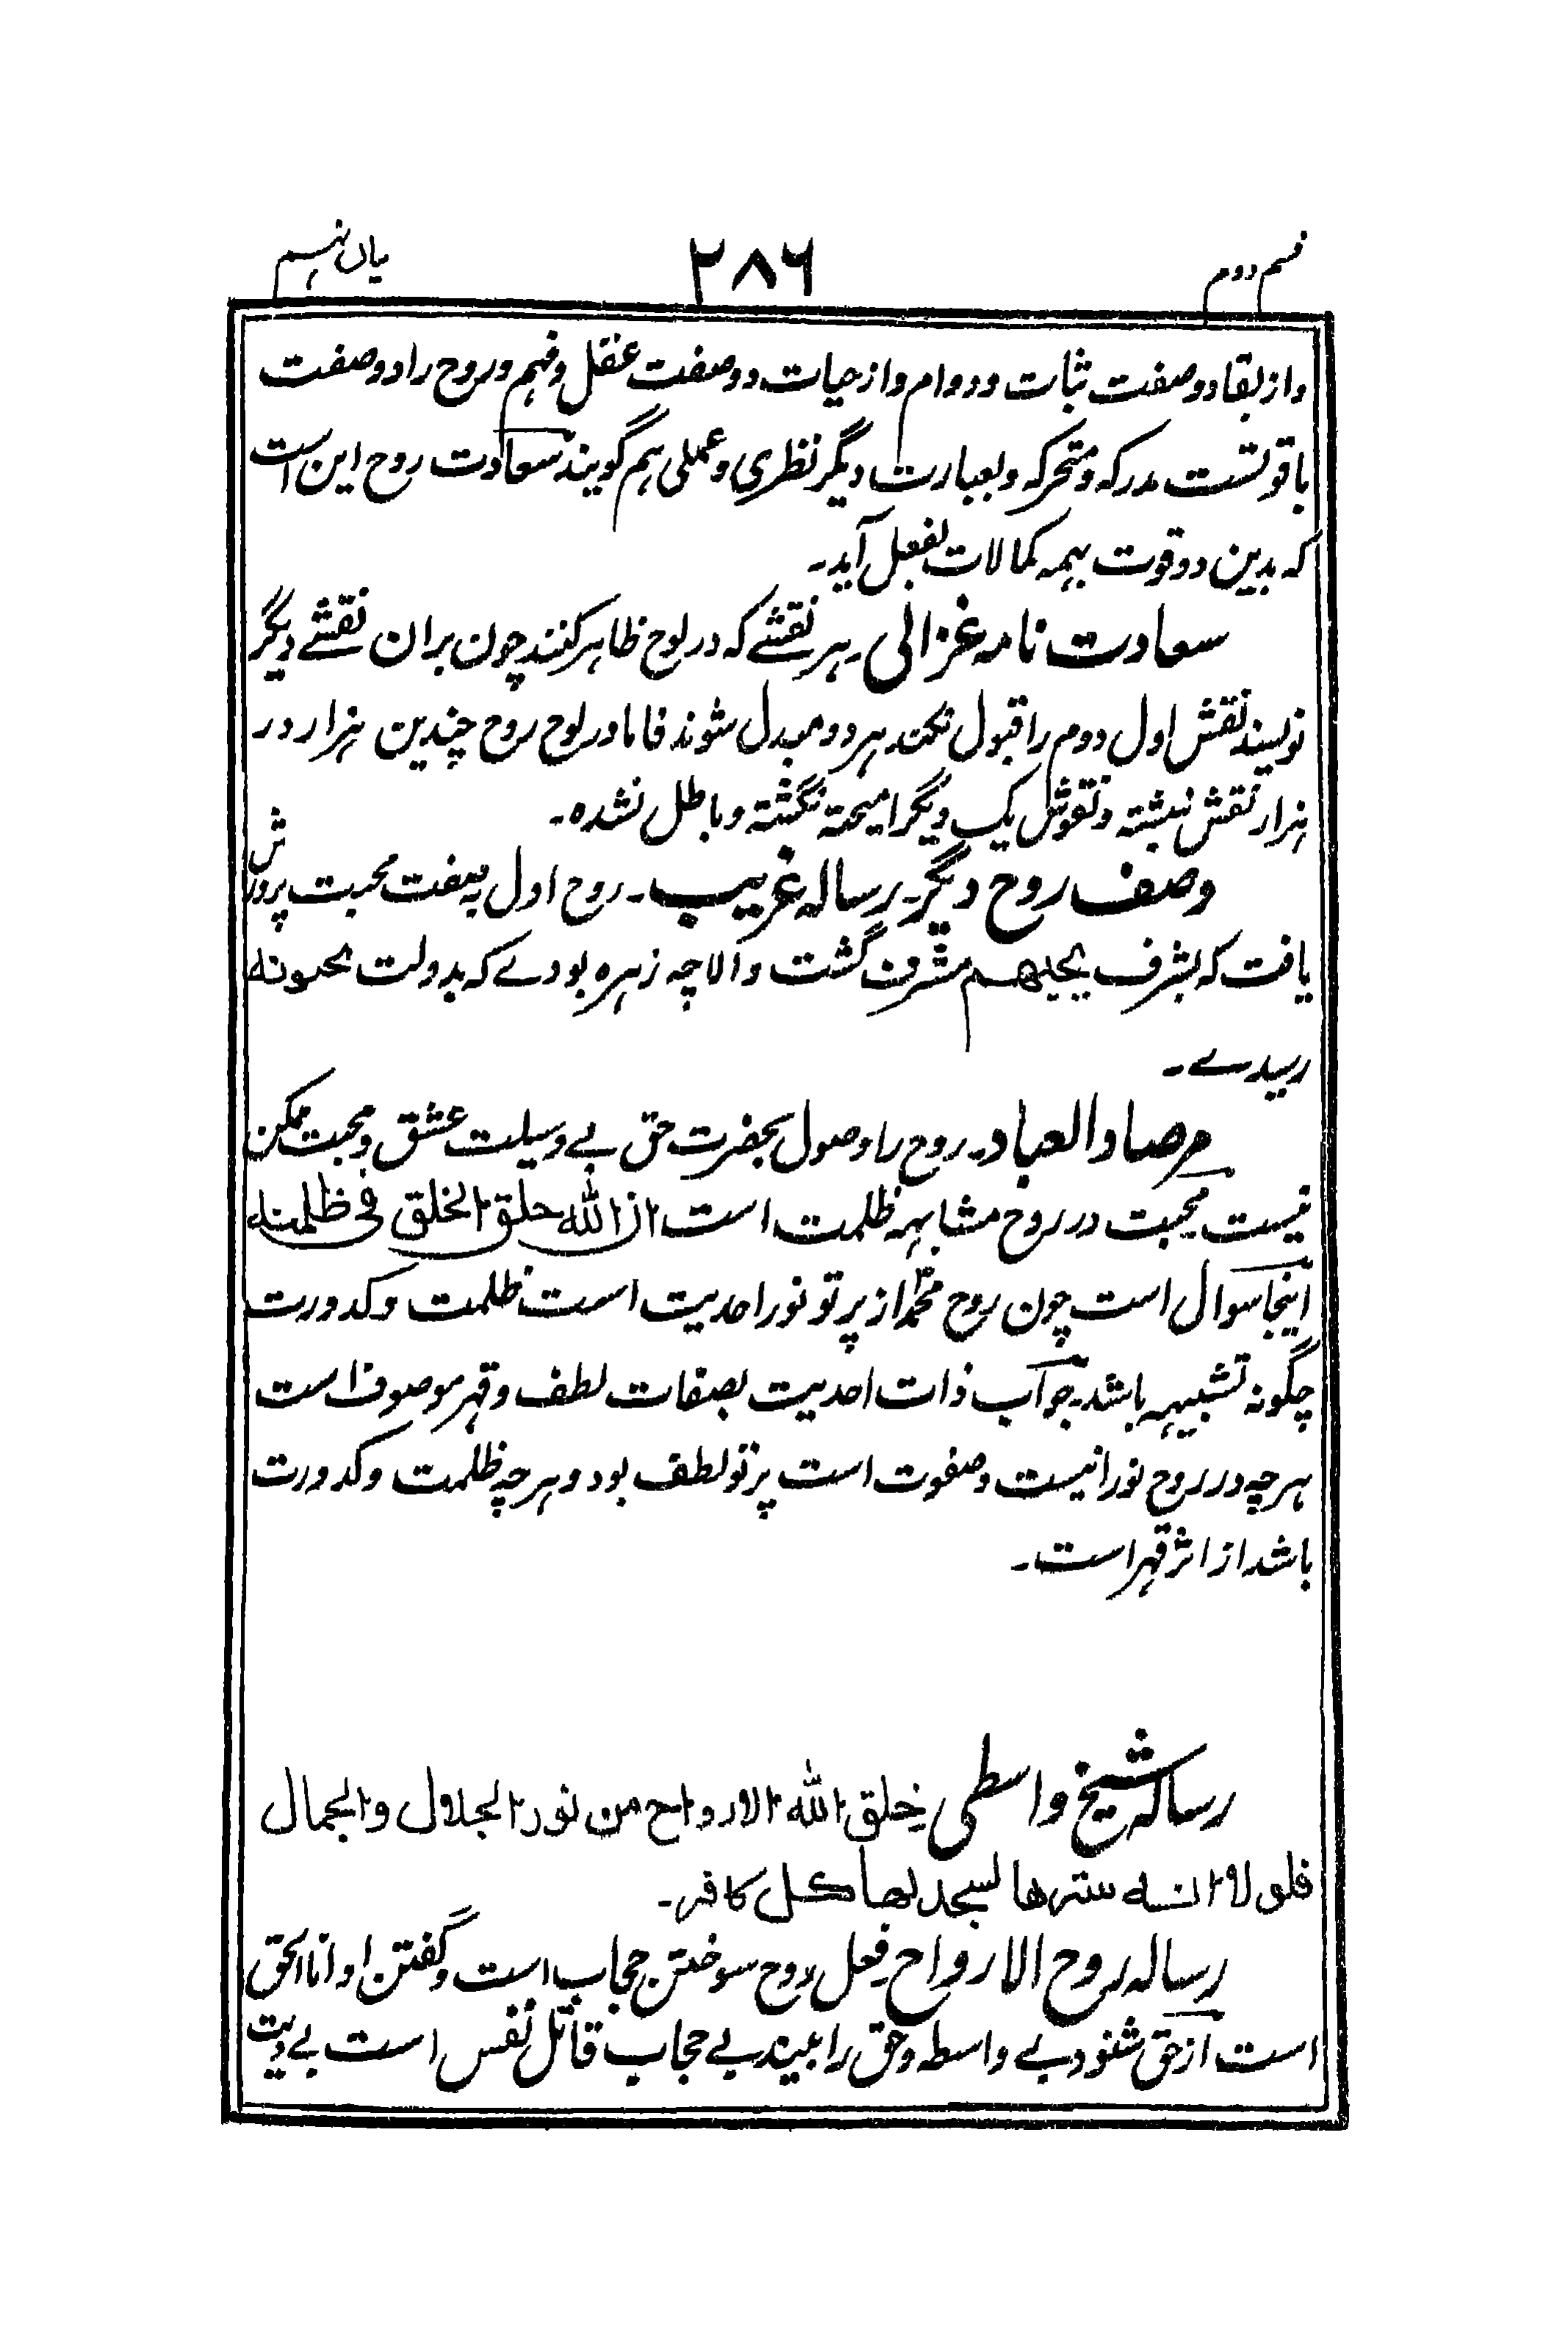 قسم دوم ۲۸۶ بیان نهم
واز بقا دو صفت ثبات و دوام واز حیات دو صفت عقل و فهم و روح را دو صفت
با قوتست مدرکه و متحرکه و بعبارت دیگر نظری و عملی هم گویند سعادت روح این است
که بدین دو قوت بهمه کمالات بفعل آید۔
سعادت نامه غزالی۔ هر نقشے که در لوح ظاهر کنند چون بران نقشے دیگر
نویسند نقش اول دوم را قبول نکند هر دو مبدل شوند فاما در لوح روح چندین هزار در
هزار نقش نبشته و نقوش یک دیگر امیخته نگشته و باطل نشده۔
وصف روح دیگر۔ رساله غریب۔ روح اول بصفت محبت پرورش
یافت که بشرف یحبهم مشرف گشت والا چه زهره بودے که بدولت یحبونه
رسیدے۔
مرصاد العباد۔ روح را وصول بحضرت حق بے وسیلت عشق و محبت ممکن
نیست محبت در روح مشابهه ظلمت است ان الله خلق الخلق فی ظلمته
اینجا سوال است چون روح محمد از پرتو نور احدیت است ظلمت و کدورت
چگونه تشبیهه باشد۔ جواب ذات احدیت بصفات لطف و قهر موصوف است
هرچه در روح نورانیست و صفوت است پرتو لطف بود و هرچه ظلمت و کدورت
باشد از اثر قهر است۔
رساله شیخ واسطی خلق الله الارواح من نور الجلال والجمال
فلولا انه سترها لسجد لها کل کافر۔
رساله روح الارواح فعل روح سوختن حجاب است و گفتن او انا الحق
است از حق شنود بے واسطه و حق را بیند بے حجاب قاتل نفس است بے دیت